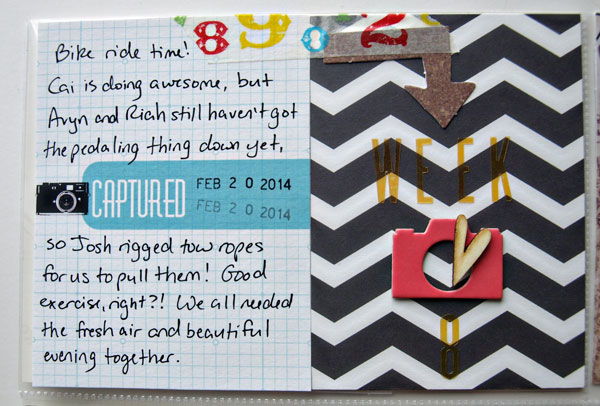 8 9 8 2
Bike ride time!
Cai is doing awesome, but
Avyn and Riah still haven't got
the pedaling thing down yet,
CAPTURED FEB 20 2014
FEB 20 2014
so Josh rigged tow ropes
for us to pull them! Good
exercise, right?! We all needed
the fresh air and beautiful
evening together.
WEEK
8